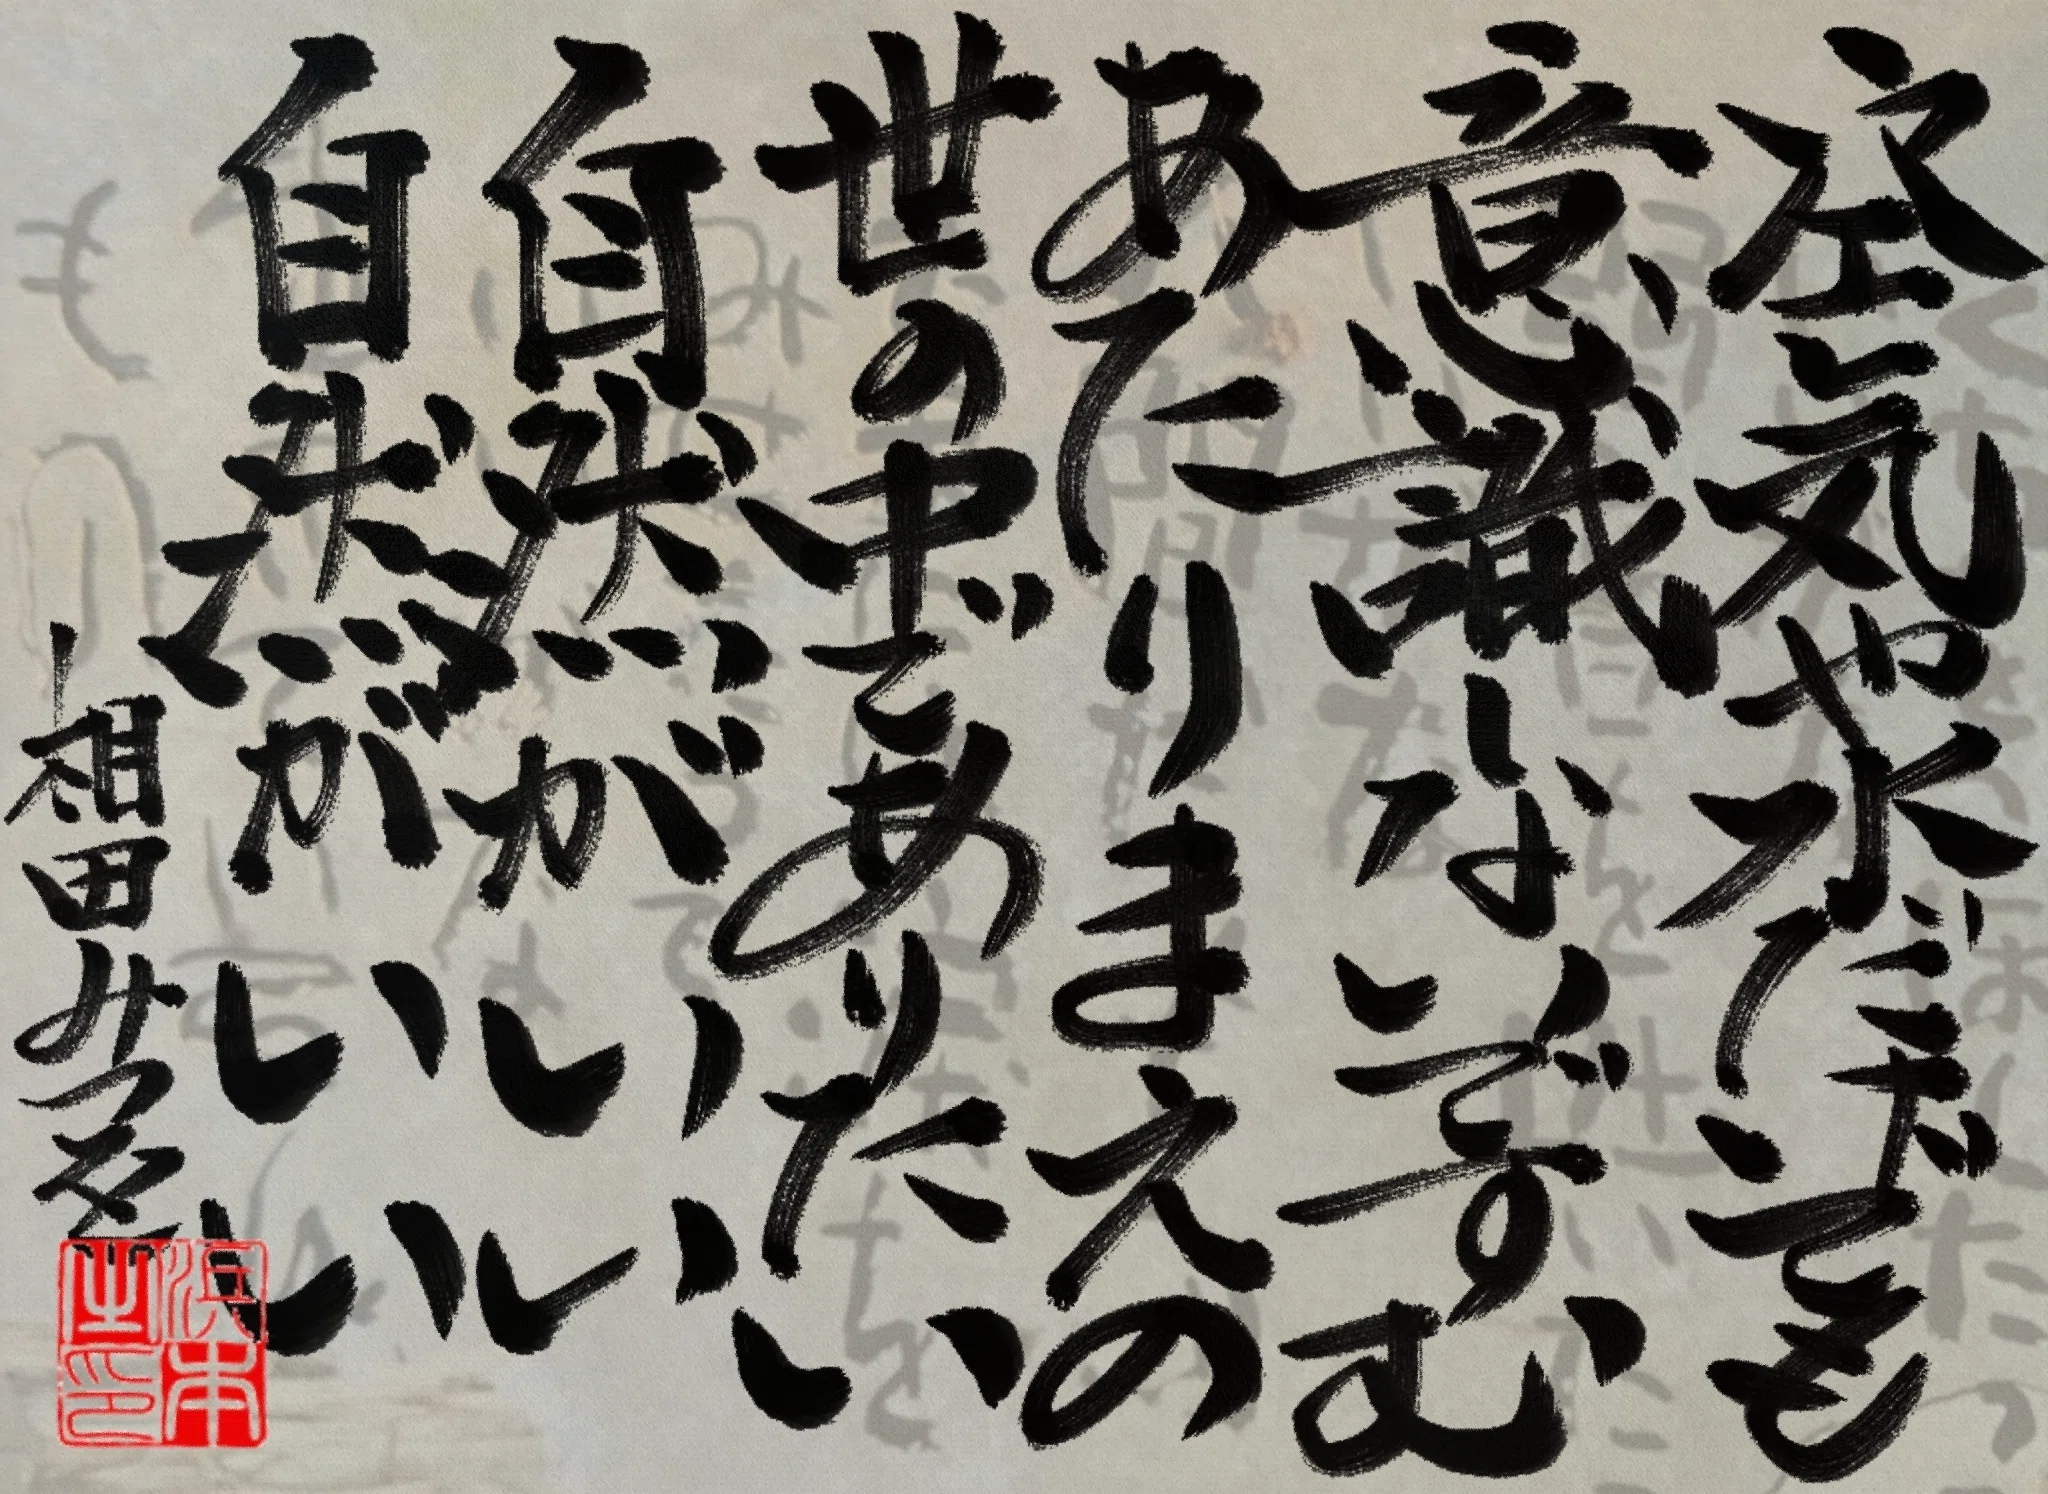 空気や水も
意識しないですむ
あたりまえの
世の中でありたい
自然がいい
自然がいい
相田みつを
浜本之印